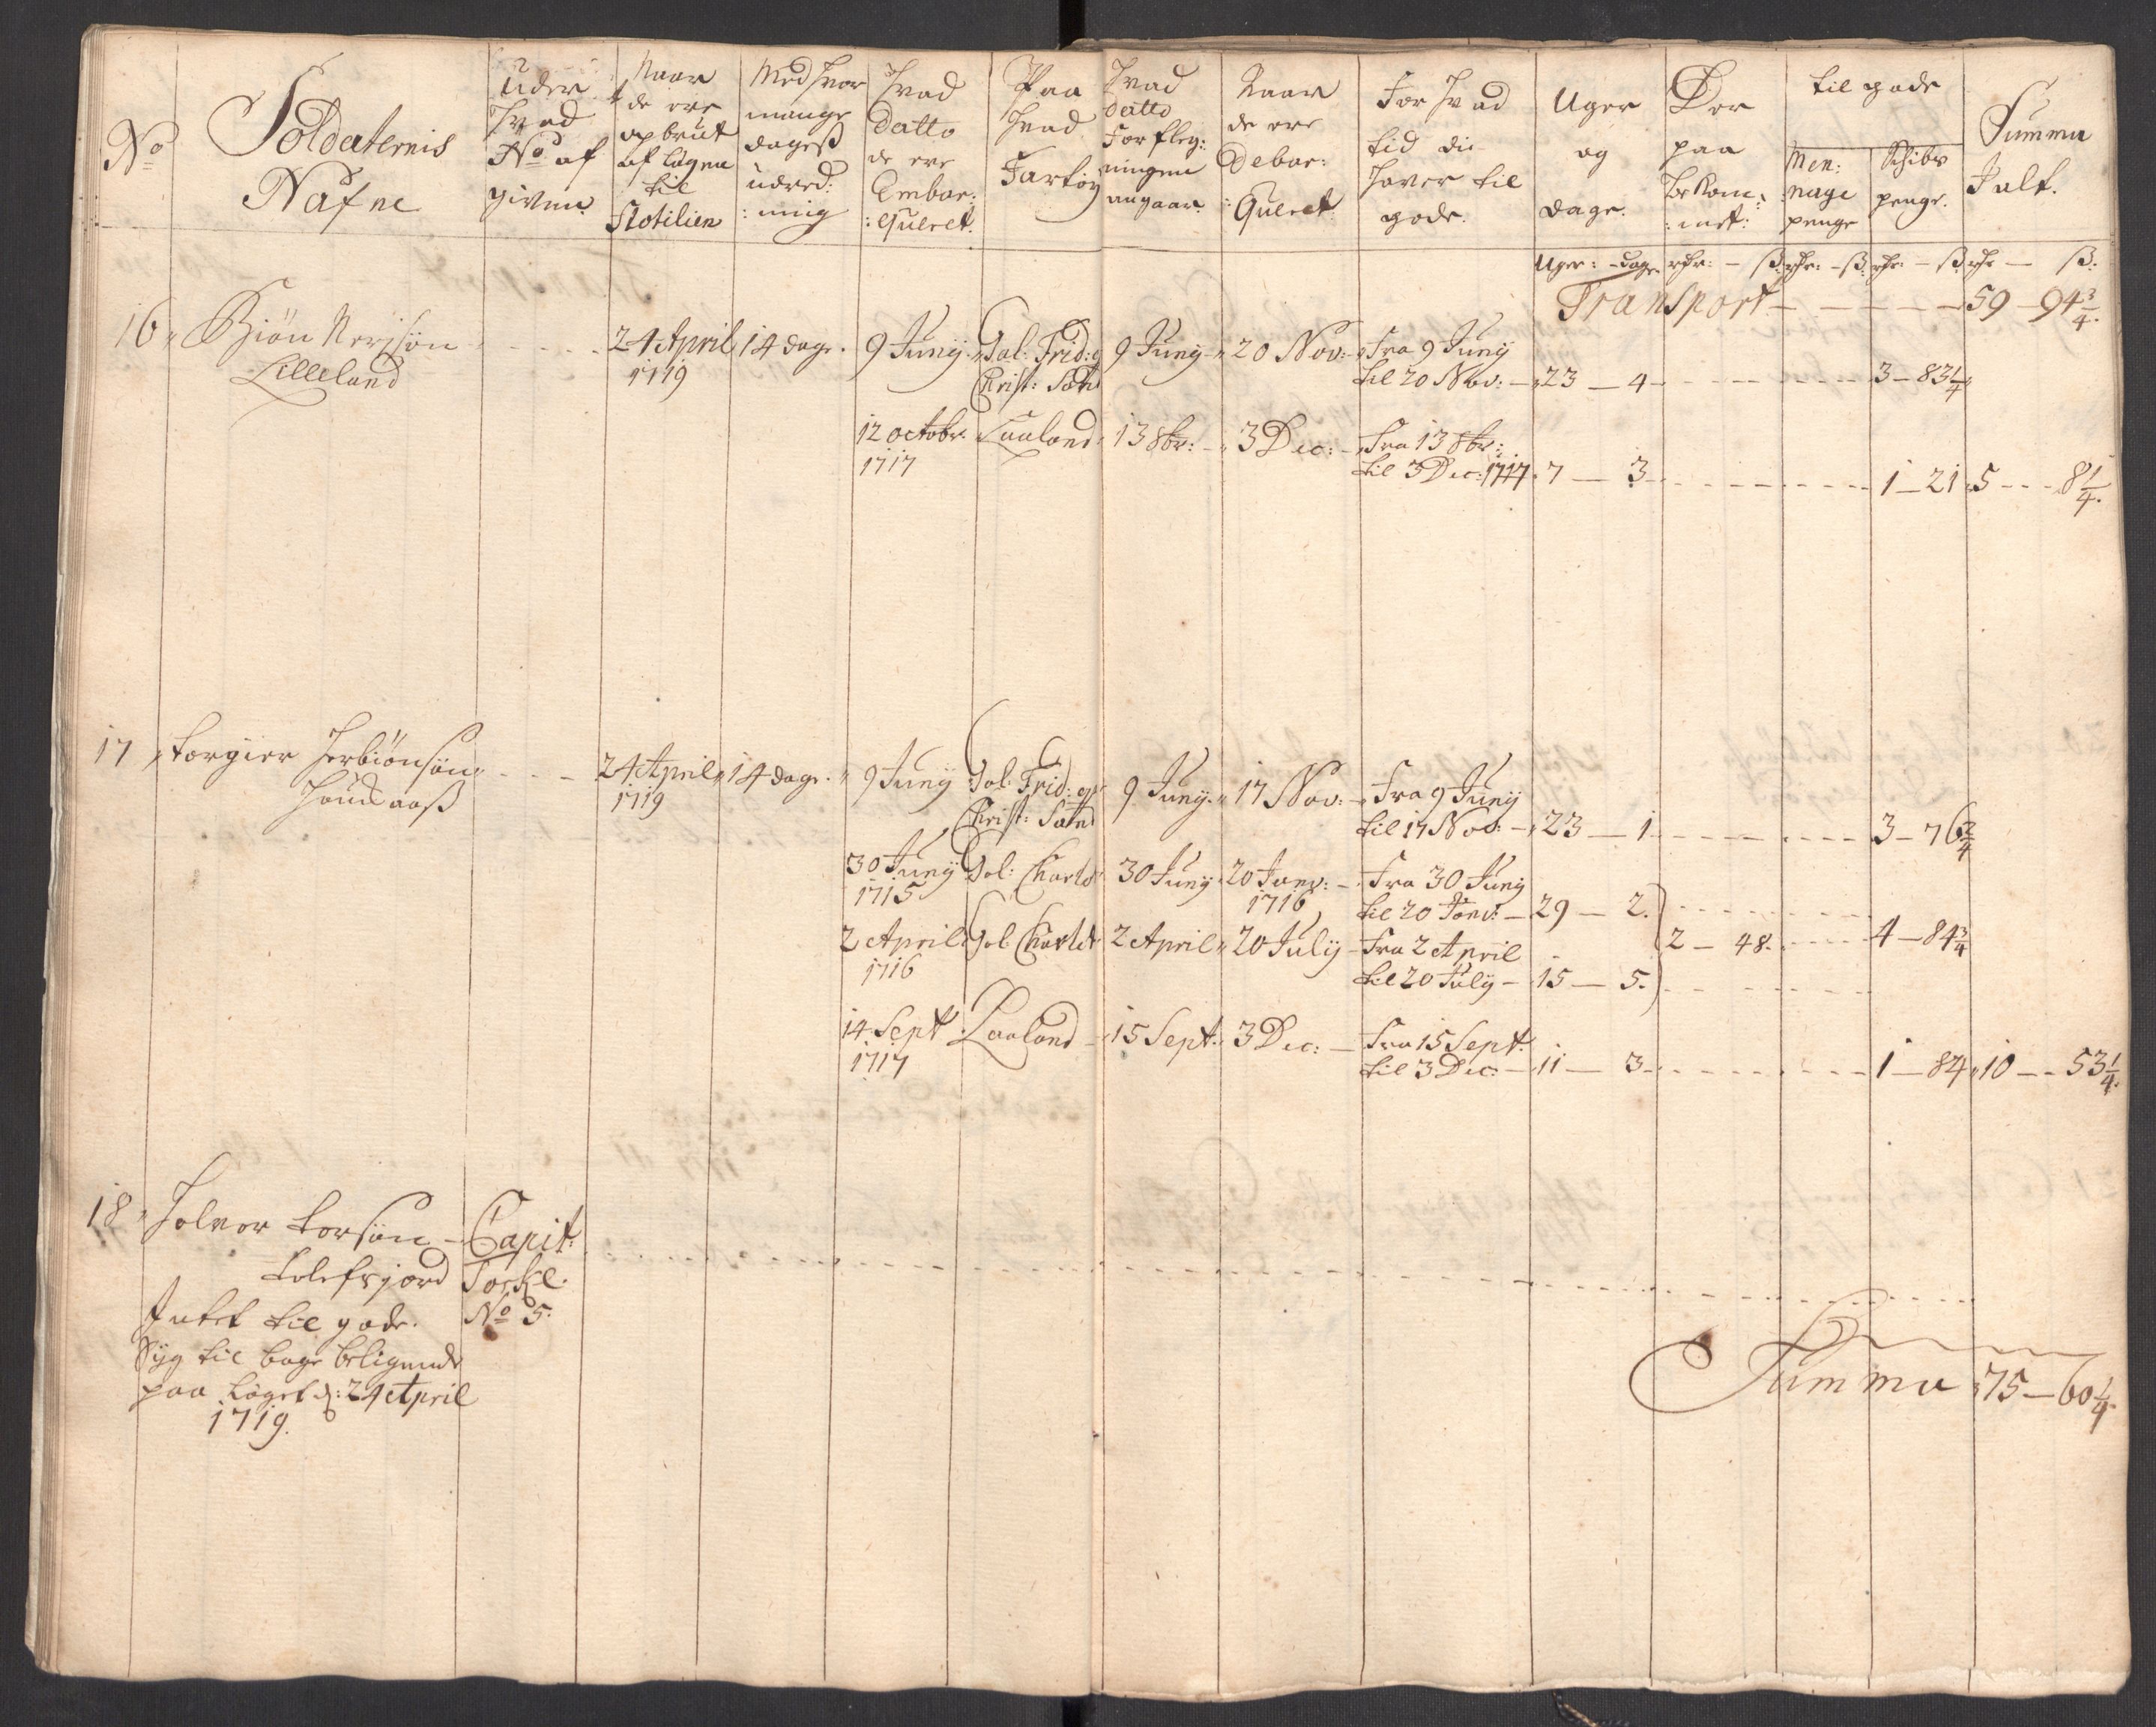 No
Soldaternis
Nafne
Uder
Hvad
No af
given
Naar
de ere
opbrut
af Lagen
til
Flotilien
Med hvor
mange
dagess
udred:
:ning
Hvad
Datto
de ere
Embar:
:queret.
Paa
Hvad
Fartøy
Hvad
Datto
Forfleg:
ningen
angaar
Naar
de ere
Debar:
:queret.
For Hvad
tid die
Haver til
gode.
Uger
og
dage.
Der
paa
bekom:
:met:
til gode
Men:
nage
penge
Schibs
penge.
Summa
I alt.
Uger: - dage rdr: - ß. rdr: - ß. rdr: - ß rdr - ß.
Transport - - - - - 59 - 94 3/4.
16 Biøn
Lilleland
24 April
1719
14 dage.
9 Junij
Gal: Frid: og
Christ: Søtn
9 Junij
20 Nov:
Fra 9 Junij
til 20 Nov: - 23 - 4 - - - - 3 - 83 1/4
12 octobr:
1717
Laaland
13 8br:
3 Dec:
Fra 13 8br:
til 3 Dec: 1717. 7 - 3 - - - - 1 - 21 5 - - 8 1/4.
17 Torgier Herbiønsøn
24 April
1719
14 dage.
9 Junij
Gal: Frid: og
Christ: Søtn
9 Junij.
17 Nov:
Fra 9 Junij
til 17 Nov: - 23 - 1 - - - - 3 - 76 2/4
30 Junij
1715
Gal: Charlot
30 Junij
20 Janv: -
1716
Fra 30 Junij
til 20 Janv: - 29 - 2.
2 April
1716
Gal: Charlot
2 April
20 Julij
Fra 2 April
til 20 Julij - 15 - 5.
2 - 48. - - - 4 - 84 3/4
14 Sept
1717
Laaland
15 Sept.
3 Dec:
Fra 15 Sept.
til 3 Dec: - 11 - 3 - - - - 1 - 84 10 - - 53 1/4.
18 Halvor Torsøn
Tolefsjord
Capit:
No 5.
Intet til gode.
Syg til bage beligende
paa Laget d: 24 April
1719.
Summa 75 - 60 1/4.